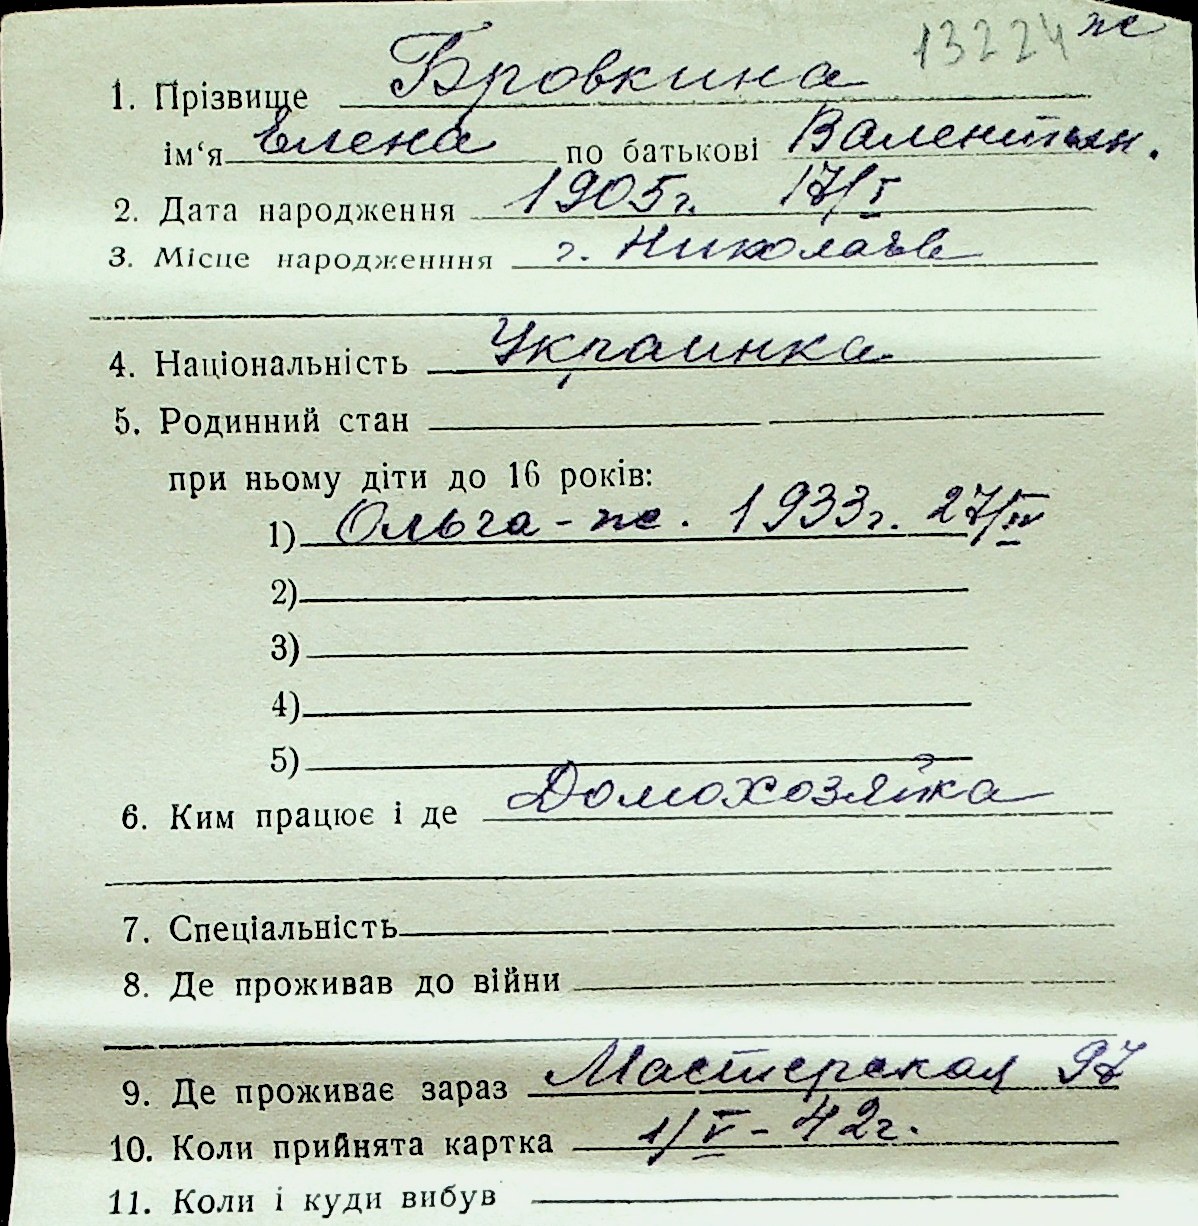 13224 ж
1. Прізвище Бровкина
ім‘я Елена по батькові Валентиан.
2. Дата народження 1905г. 17/I
3. Місце народженння г. Николаев
4. Національність Украинка
5. Родинний стан
при ньому діти до 16 років:
1) Ольга - ж. 1933г. 27/IV
2)
3)
4)
5)
6. Ким працює і де Домохозяйка
7. Спеціальність
8. Де проживав до війни
9. Де проживає зараз Мастерская 97
10. Коли прийнята картка 1/V - 42г.
11. Коли і куди вибув